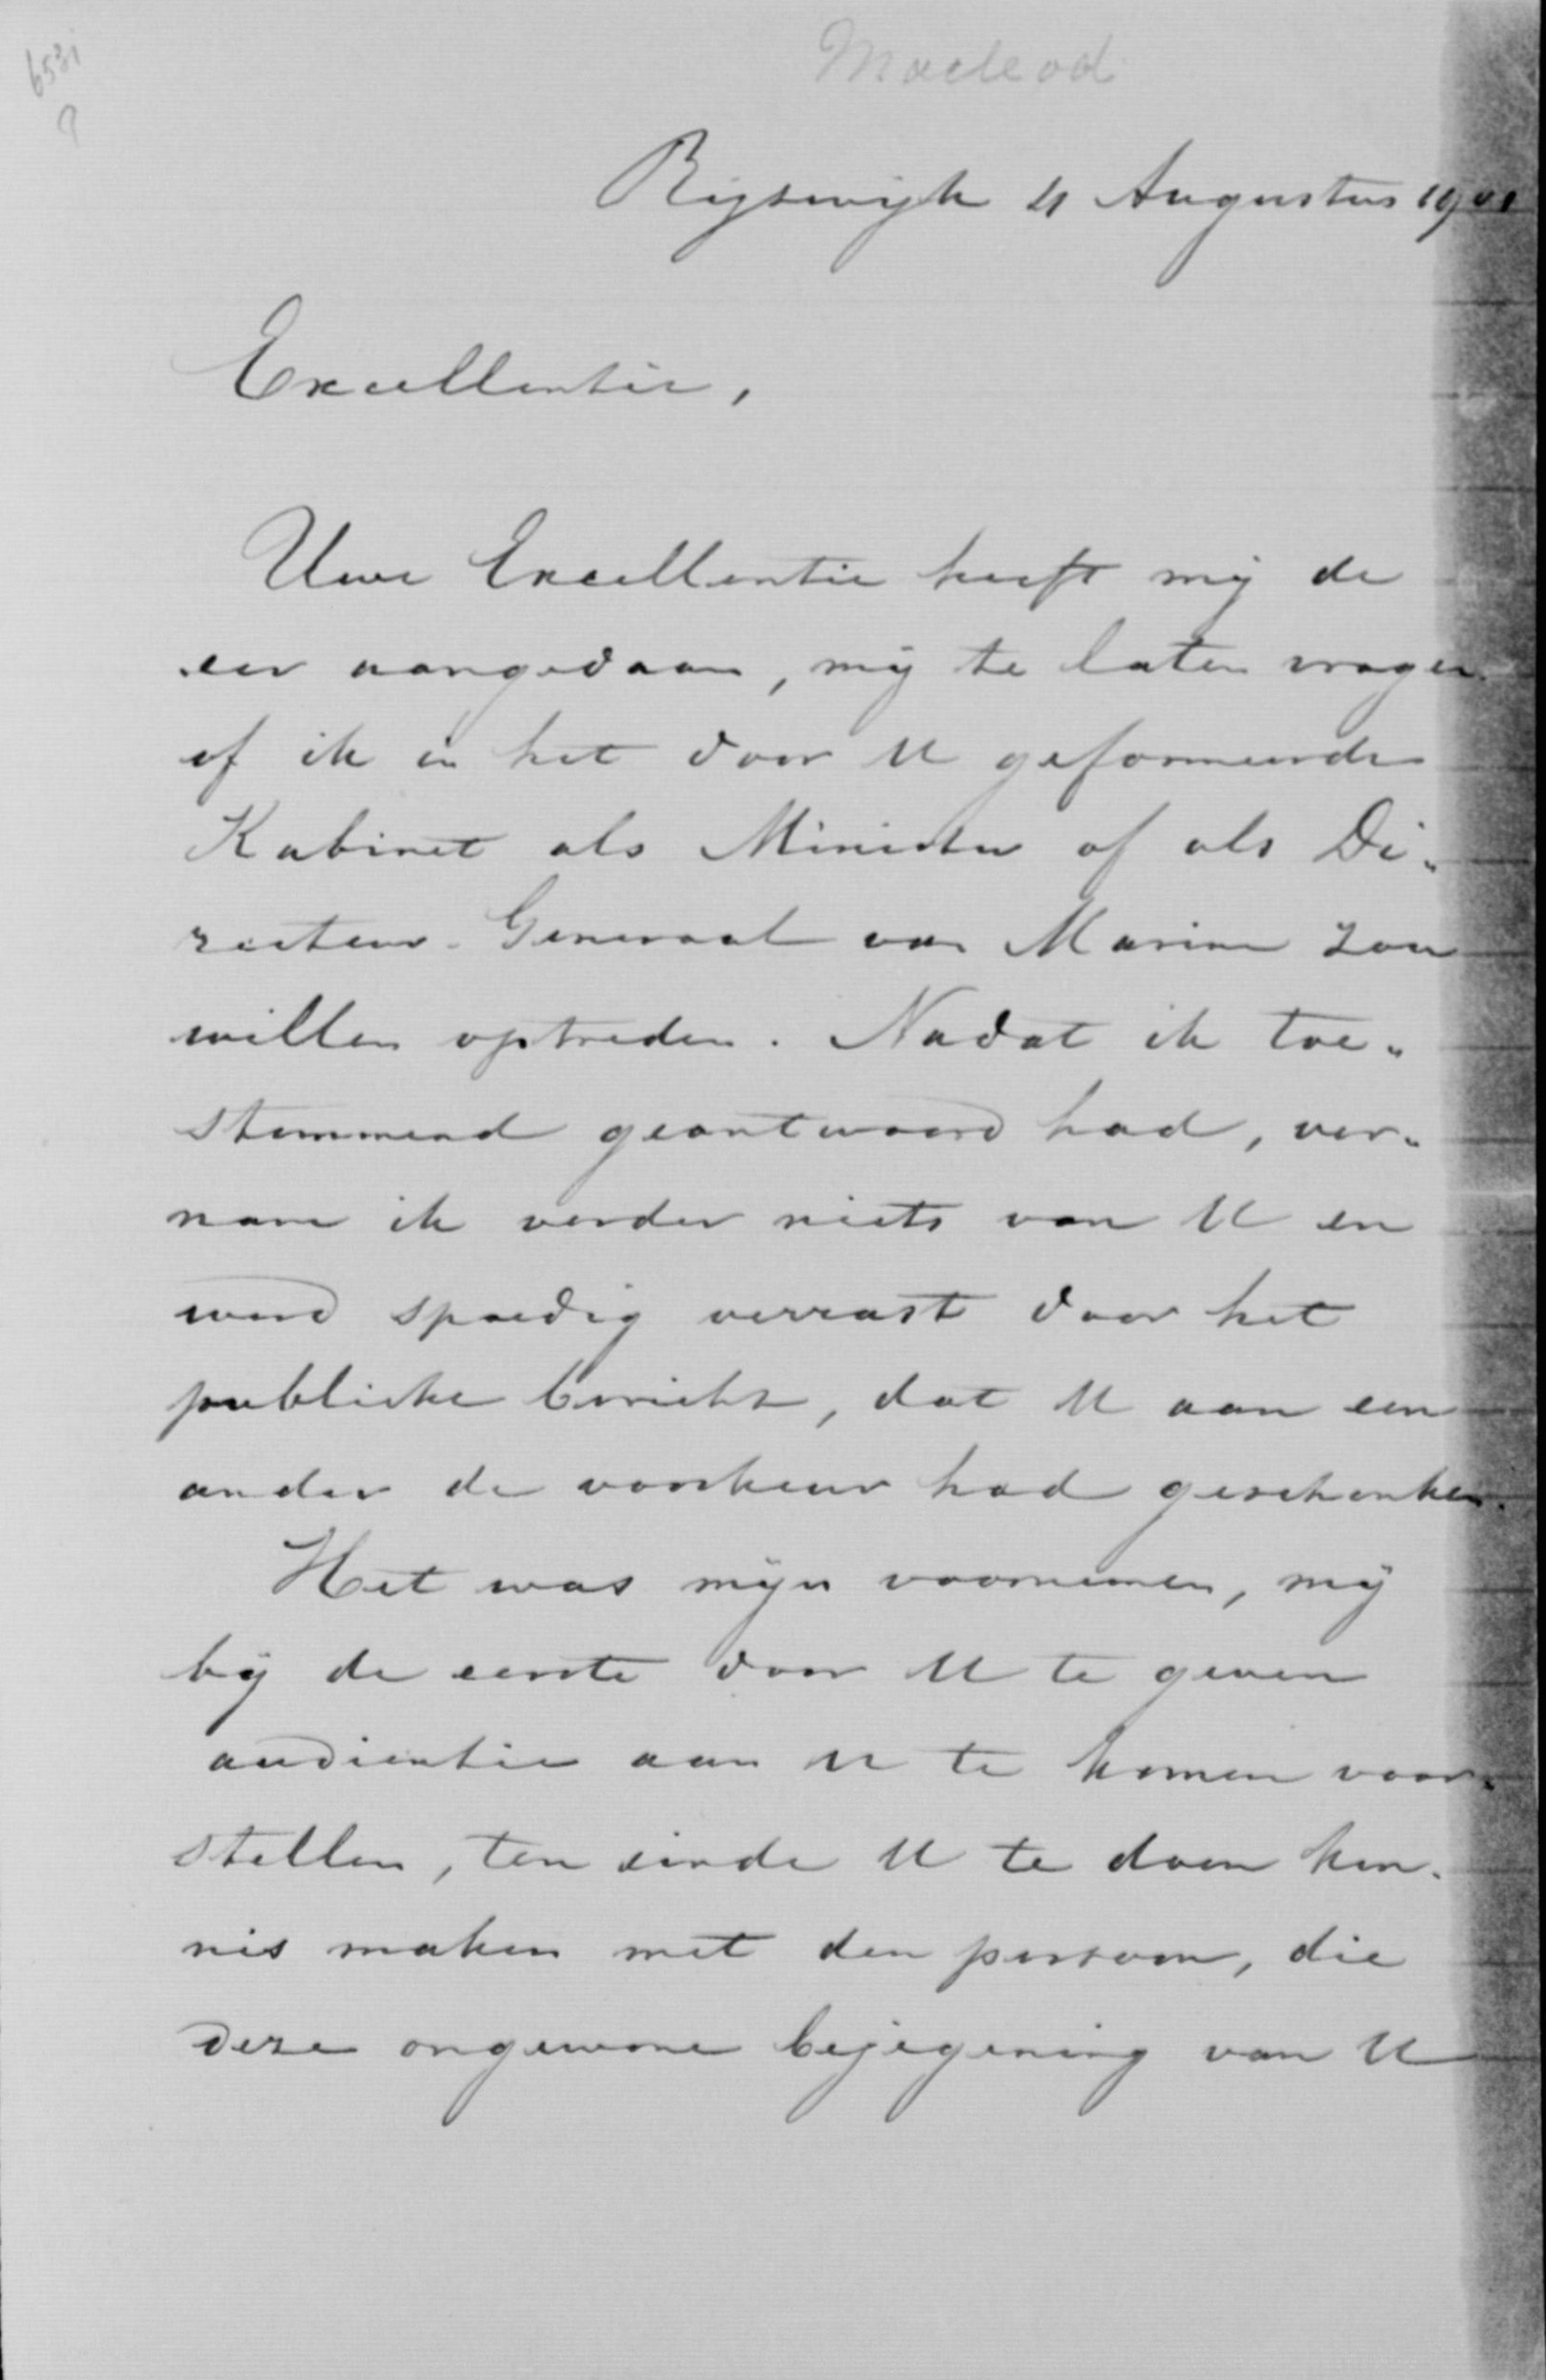 Macleod
Rijswijk 4 Augustus 1901
Excellentie,
Uwe Excellentie heeft mij de
eer aangedaan, mij te laten vragen
of ik in het door U geformeerde
Kabinet als Minister of als Di„
recteur-Generaal van Marine zou
willen optreden. Nadat ik toe„
stemmend geantwoord had, ver„
nam ik verder niets van U en
werd spoedig verrast door het
publieke bericht, dat U aan een
ander de voorkeur had geschonken.
Het was mijn voornemen, mij
bij de eerste door U te geven
audientie aan U te komen voor„
stellen, ten einde U te doen ken„
nis maken met den persoon, die
deze ongewone bejegening van U